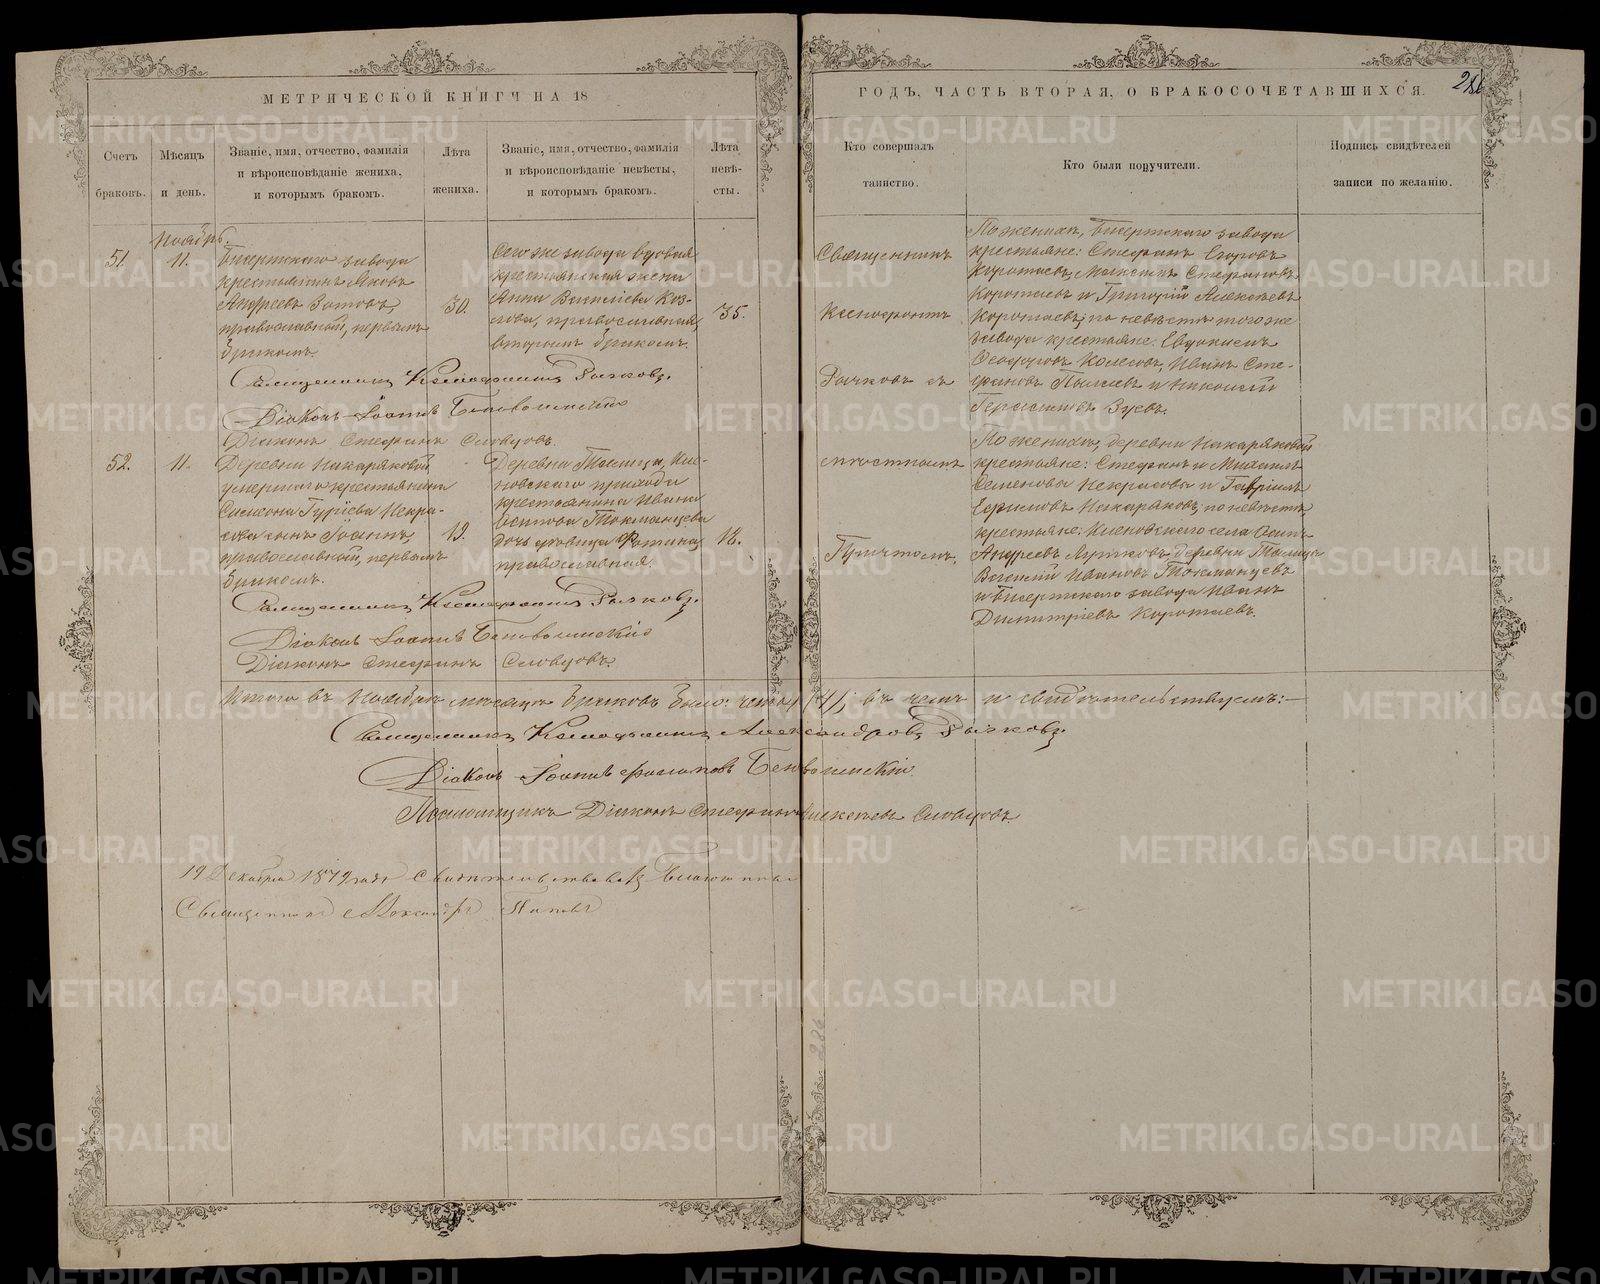 МЕТРИЧЕСКОЙ КНИГИ НА 18
ГОДЪ, ЧАСТЬ ВТОРАЯ, О БРАКОСОЧЕТАВШИХСЯ.
286
Счетъ браковъ.
Мѣсяцъ и день.
Званіе, имя, отчество, фамилія
и вѣроисповѣданіе жениха,
и которымъ бракомъ.
Лѣта жениха.
Званіе, имя, отчество, фамилія
и вѣроисповѣданіе невѣсты,
и которымъ бракомъ.
Лѣта
невѣ-
сты.
Кто совершалъ
таинство.
Кто были поручители.
Подпись свидѣтелей
записи по желанію.
Ноябрь.
51.
11.
Бисертскаго завода
крестьянинъ Яковъ
Андреевъ Зотовъ,
православный, первымъ
бракомъ.
30.
Сего же завода вдовая
крестьянская жена
Анна Васильева Коз-
лова, православная,
вторымъ бракомъ.
35.
Священникъ
Ксенофонтъ
Рычковъ съ
По женихѣ, Бисертскаго завода
крестьяне: Стефанъ Егоровъ
Коротаевъ, Максимъ Стефановъ
Коротаевъ и Григорій Алексѣевъ
Коротаевъ; по невѣстѣ того же
завода крестьяне: Евдокимъ
Ѳеодоровъ Колесовъ, Иванъ Сте-
фановъ Пылаевъ и Николай
Герасимовъ Зуевъ.
Священникъ Ксенофонтъ Рычковъ.
Діаконъ Іоаннъ
Діаконъ Стефанъ Словцовъ.
52.
11.
Деревни Накаряковой,
умершаго крестьянина
Симеона Гуріева Некра-
сова сынъ Іоаннъ,
православный, первымъ
бракомъ.
19.
Деревни Талицы, Кле-
новскаго прихода
крестьянина Ивана
Осипова Токманцева
дочь дѣвица Фотина,
православная.
18.
причтомъ.
По женихѣ, деревни Накаряковой
крестьяне: Стефанъ и Михаилъ
Семеновы Некрасовы и Гавріилъ
Ефимовъ Накаряковъ; по невѣстѣ,
крестьяне: Кленовскаго села Осипъ
Андреевъ деревни Талицы
Василій Ивановъ Токманцевъ
и Бисертскаго завода Иванъ
Димитріевъ Коротаевъ.
Священникъ Ксенофонтъ Рычковъ.
Діаконъ Іоаннъ
Діаконъ Стефанъ Словцовъ.
Итого въ Ноябрѣ мѣсяцѣ браковъ было: четыре (4); въ чемъ и свидѣтельствуемъ:—
Священникъ Ксенофонтъ Александровъ Рычковъ.
Діаконъ Іоаннъ
Псаломщикъ Діаконъ Стефанъ Алексѣевъ Словцовъ.
19 Декабря 1879 года Свидѣтельствовалъ Благочинный
Священникъ Александръ Поповъ
286
METRIKI.GASO-URAL.RU